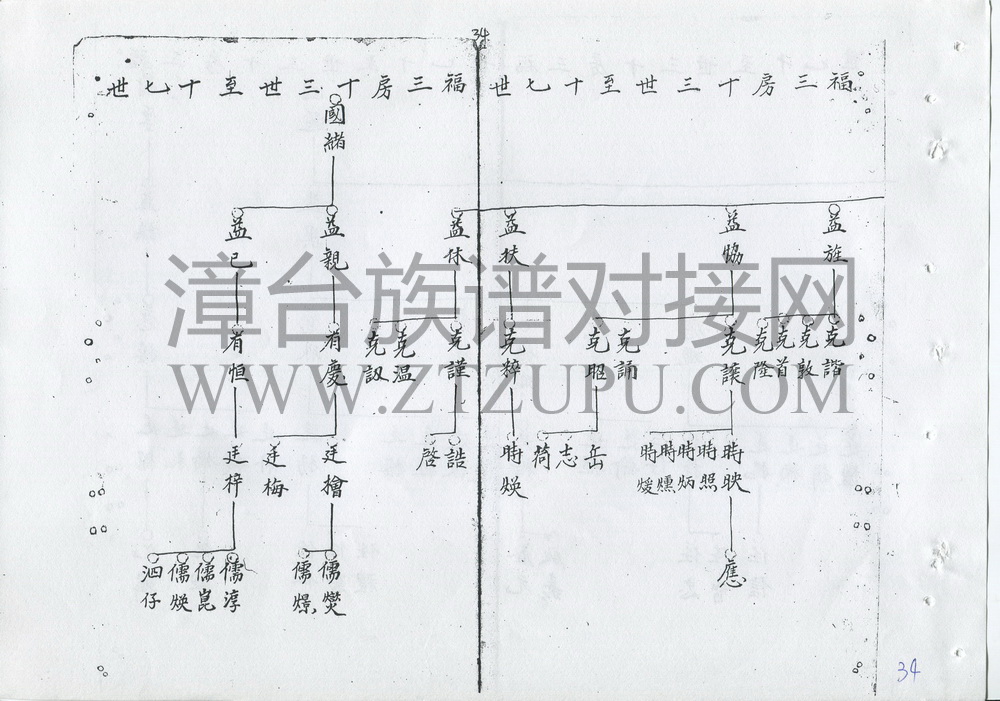 34
福三房十三世至十七世
益旌
益協
益扶
克諧
克敦
克首
克陞
克讓
克誦
克昭
克粹
時映
時照
時炳
時燻
時煖
岳
志
荷
時煥
應
福三房十三世至十七世
國緒
益休
益親
益已
克謹
克温
克訒
有慶
有恒
誥
啓
廷檜
廷梅
廷梓
儒燮
儒燝
儒淳
儒崑
儒煥
泗仔
漳台族谱对接网
WWW.ZTZUPU.COM
34